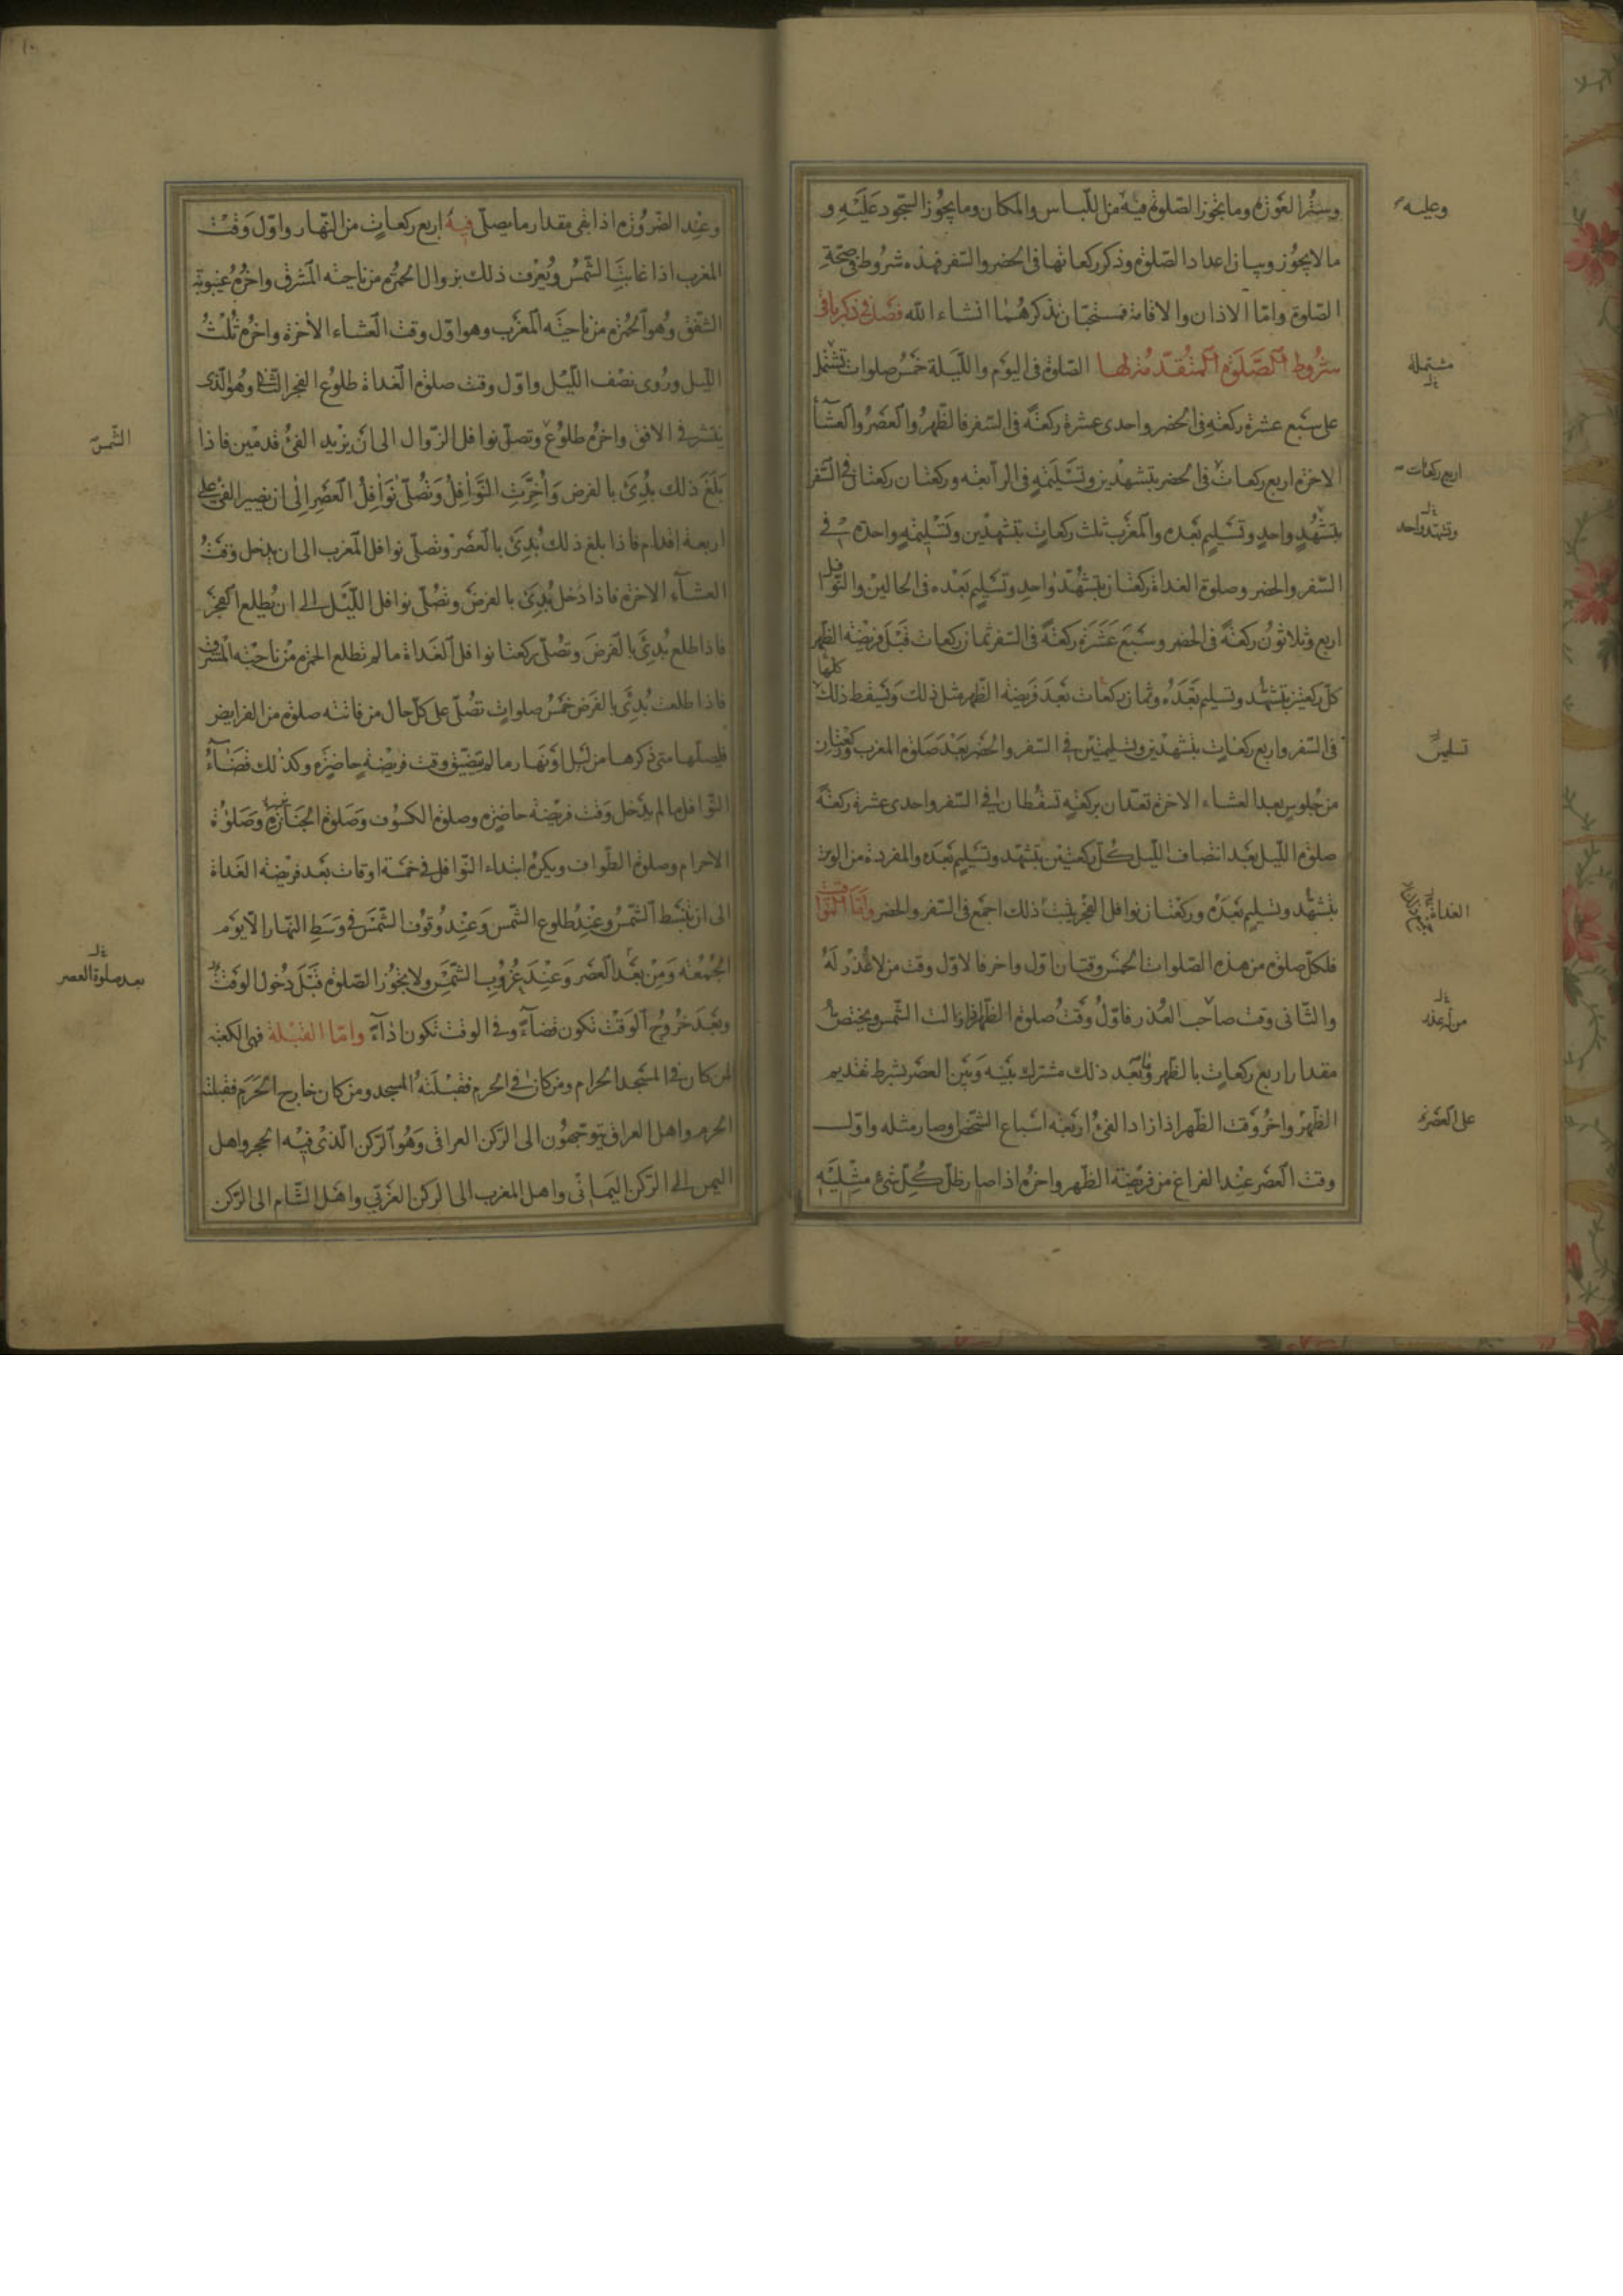 وستر العورة وما يجوز الصلوة فيه من اللباس والمكان وما يجوز السجود عليه و
وعليه
ما لا يجوز وبيان اعداد الصلوة وذكر ركعاتها فى الحضر والسفر فهذه شروط فى صحة
الصلوة واما الاذان والاقامة فمستحبان نذكرهما انشاء الله فصل فى ذكر باقى
شروط الصلوة المتقدمة لها الصلوة فى اليوم والليلة خمس صلوات تشتمل
مشتملة
على سبع عشرة ركعة فى الحضر واحدى عشرة ركعة فى السفر فالظهر والعصر والعشآء
الاخرة اربع ركعات فى الحضر بتشهدين وتسليمة فى الرابعة وركعتان ركعتان فى السفر
اربع ركعات
بتشهد واحد وتسليم بعده والمغرب ثلث ركعات بتشهدين وتسليمة واحدة فى
وتشهد واحد
السفر والحضر وصلوة الغداة ركعتان بتشهد واحد وتسليم بعده فى الحالين والنوافل
اربع وثلاثون ركعة فى الحضر وسبع عشرة ركعة فى السفر ثمان ركعات قبل فريضة الظهر
كل ركعتين بتشهد وتسليم بعده وثمان ركعات بعد فريضة الظهر مثل ذلك ويسقط ذلك كلها
فى السفر واربع ركعات بتشهدين وتسليمتين فى السفر والحضر بعد صلوة المغرب وركعتان
من جلوس بعد العشاء الاخرة تعدان بركعة تسقطان فى السفر واحدى عشرة ركعة
صلوة الليل بعد انتصاف الليل كل ركعتين بتشهد وتسليم بعده والمفردة من الوتر
بتشهد وتسليم بعده وركعتان نوافل الفجر يثبت ذلك اجمع فى السفر والحضر واما المواقيت
الغداة
فلكل صلوة من هذه الصلوات الخمس وقتان اول واخر فالاول وقت من لا عذر له
والثانى وقت صاحب العذر فاول وقت صلوة الظهر اذا زالت الشمس ويختص
من له عذر
مقدار اربع ركعات بالظهر وما بعد ذلك مشترك بينه وبين العصر بشرط تقديم
الظهر واخر وقت الظهر اذا زاد الفئ اربعة اسباع الشخص او صار مثله واول
على العصر
وقت العصر عند الفراغ من فريضة الظهر واخره اذا صار ظل كل شئ مثليه
وعند الضرورة اذا بقى مقدار ما يصلى فيه اربع ركعات من النهار واول وقت
المغرب اذا غابت الشمس ويعرف ذلك بزوال الحمرة من ناحية المشرق واخره غيبوبة
الشفق وهو الحمرة من ناحية المغرب وهو اول وقت العشاء الأخرة واخره ثلث
الليل وروى نصف الليل واول وقت صلوة الغداة طلوع الفجر الثانى وهو الذى
ينتشر فى الافق واخره طلوع وتصلى نوافل الزوال الى ان يزيد الفئ قدمين فاذا
الشمس
بلغ ذلك بدئ بالفرض وأخرت النوافل وتصلى نوافل العصر الى ان يصير الفئ على
اربعة اقدام فاذا بلغ ذلك بدئ بالعصر وتصلى نوافل المغرب الى ان يدخل وقت
العشآء الاخرة فاذا دخل بدئ بالفرض وتصلى نوافل الليل الى ان يطلع الفجر
فاذا طلع بدئ بالفرض وتصلى ركعتا نوافل الغداة ما لم تطلع الحمرة من ناحية المشرق
فاذا طلعت بدئ بالفرض خمس صلوات تصلى على كل حال من فاتته صلوة من الفرايض
فليصلها متى ذكرها من ليل او نهار ما لم يتضيق وقت فريضة حاضرة وكذلك قضآء
النوافل ما لم يدخل وقت فريضة حاضرة وصلوة الكسوف وصلوة الجنازة وصلوة
الاحرام وصلوة الطواف ويكره ابتداء النوافل فى خمسة اوقات بعد فريضة الغداة
الى ان تنبسط الشمس وعند طلوع الشمس وعند وقوف الشمس فى وسط النهار الا يوم
الجمعة ومن بعد العصر وعند غروب الشمس ولا يجوز الصلوة قبل دخول الوقت
بعد صلوة العصر
وبعد خروج الوقت تكون قضآء وفى الوقت تكون اداء واما القبلة فهى الكعبة
لمن كان فى المسجد الحرام ومن كان فى الحرم فقبلته المسجد ومن كان خارج الحرم فقبلته
الحرم واهل العراق يتوجهون الى الركن العراقى وهو الركن الذى فيه الحجر واهل
اليمن الى الركن اليمانى واهل المغرب الى الركن الغربى واهل الشام الى الركن